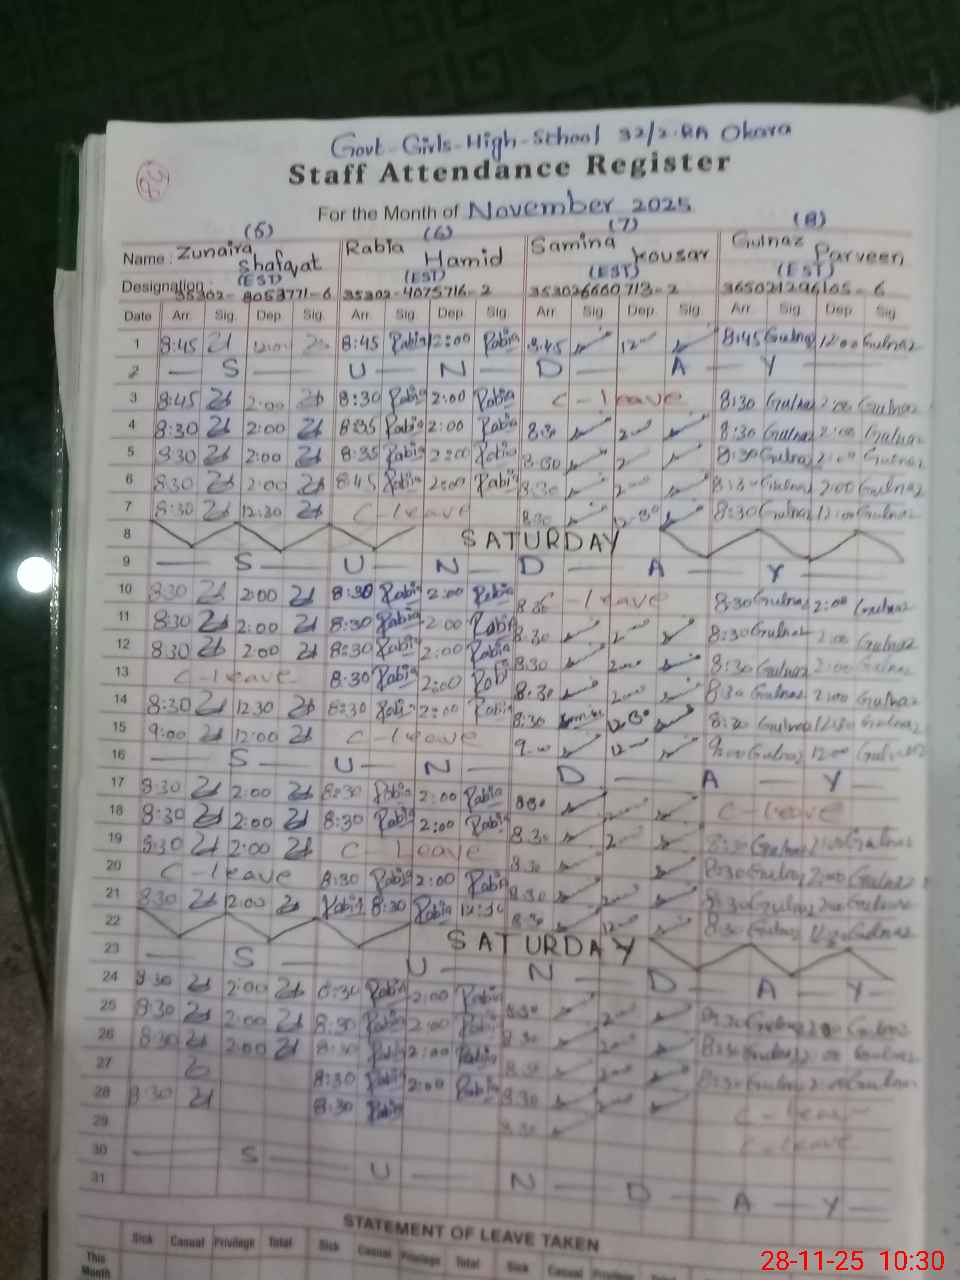 Govt-Girls-High-School 32/2-RA Okara
Staff Attendance Register
28
For the Month of November 2025
(5) (6) (7) (8)
Name: Zunaira Shafqat Rabia Hamid Samina Kousar Gulnaz Parveen
Designation: (EST) (EST) (EST) (EST)
35302-8053771-6 35302-4075716-2 353026660713-2 365021296105-6
Date Arr. Sig. Dep. Sig. Arr. Sig. Dep. Sig. Arr. Sig. Dep. Sig. Arr. Sig. Dep. Sig.
1 8:45 12:00 8:45 Rabia 12:00 Rabia 8:45 12 8:45 Gulnaz 12:00 Gulnaz
2 S U N D A Y
3 8:45 2:00 8:30 Rabia 2:00 Rabia C-leave 8:30 Gulnaz 2:00 Gulnaz
4 8:30 2:00 8:35 Rabia 2:00 Rabia 8:30 2 8:30 Gulnaz 2:00 Gulnaz
5 8:30 2:00 8:35 Rabia 2:00 Rabia 8:30 2 8:30 Gulnaz 2:00 Gulnaz
6 8:30 2:00 8:45 Rabia 2:00 Rabia 8:30 2 8:30 Gulnaz 2:00 Gulnaz
7 8:30 12:30 C-leave 8:30 12:30 8:30 Gulnaz 12:00 Gulnaz
8 SATURDAY
9 S U N D A Y
10 8:30 2:00 8:30 Rabia 2:00 Rabia C-leave 8:30 Gulnaz 2:00 Gulnaz
11 8:30 2:00 8:30 Rabia 2:00 Rabia 8:30 2 8:30 Gulnaz 2:00 Gulnaz
12 8:30 2:00 8:30 Rabia 2:00 Rabia 8:30 2 8:30 Gulnaz 2:00 Gulnaz
13 C-leave 8:30 Rabia 2:00 Rabi 8:30 2 8:30 Gulnaz 2:00 Gulnaz
14 8:30 12:30 8:30 Rabia 2:00 Rabia 8:30 12:30 8:30 Gulnaz 12:30 Gulnaz
15 9:00 12:00 C-leave 9:00 12 9:00 Gulnaz 12:00 Gulnaz
16 S U N D A Y
17 8:30 2:00 8:30 Rabia 2:00 Rabia 8:30 2 C-leave
18 8:30 2:00 8:30 Rabia 2:00 Rabia 8:30 2 8:30 Gulnaz 2:00 Gulnaz
19 8:30 2:00 C-leave 8:30 8:30 Gulnaz 2:00 Gulnaz
20 C-leave 8:30 Rabia 2:00 Rabia 8:30 8:30 Gulnaz 2:00 Gulnaz
21 8:30 2:00 Rabia 8:30 Rabia 12:30 8:30 12 8:30 Gulnaz 12:30 Gulnaz
22 SATURDAY
23 S U N D A Y
24 8:30 2:00 8:30 Rabia 2:00 Rabia 8:30 2 8:30 Gulnaz 2:00 Gulnaz
25 8:30 2:00 8:30 Rabia 2:00 Rabia 8:30 2 8:30 Gulnaz 2:00 Gulnaz
26 8:30 2:00 8:30 Rabia 2:00 Rabia 8:30 2 8:30 Gulnaz 2:00 Gulnaz
27 8:30 Rabia 2:00 Rabia 8:30 C-leave
28 8:30 8:30 Rabia 8:30 C-leave
29
30 S U N D A Y
31
STATEMENT OF LEAVE TAKEN
Sick Casual Privilege Total Sick Casual Privilege Total Sick Casual Privilege Total
This Month
28-11-25 10:30